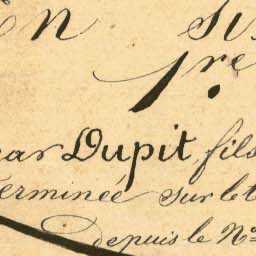 EN SU
1re
par Dupit, fils
Terminée sur le t
Depuis le No